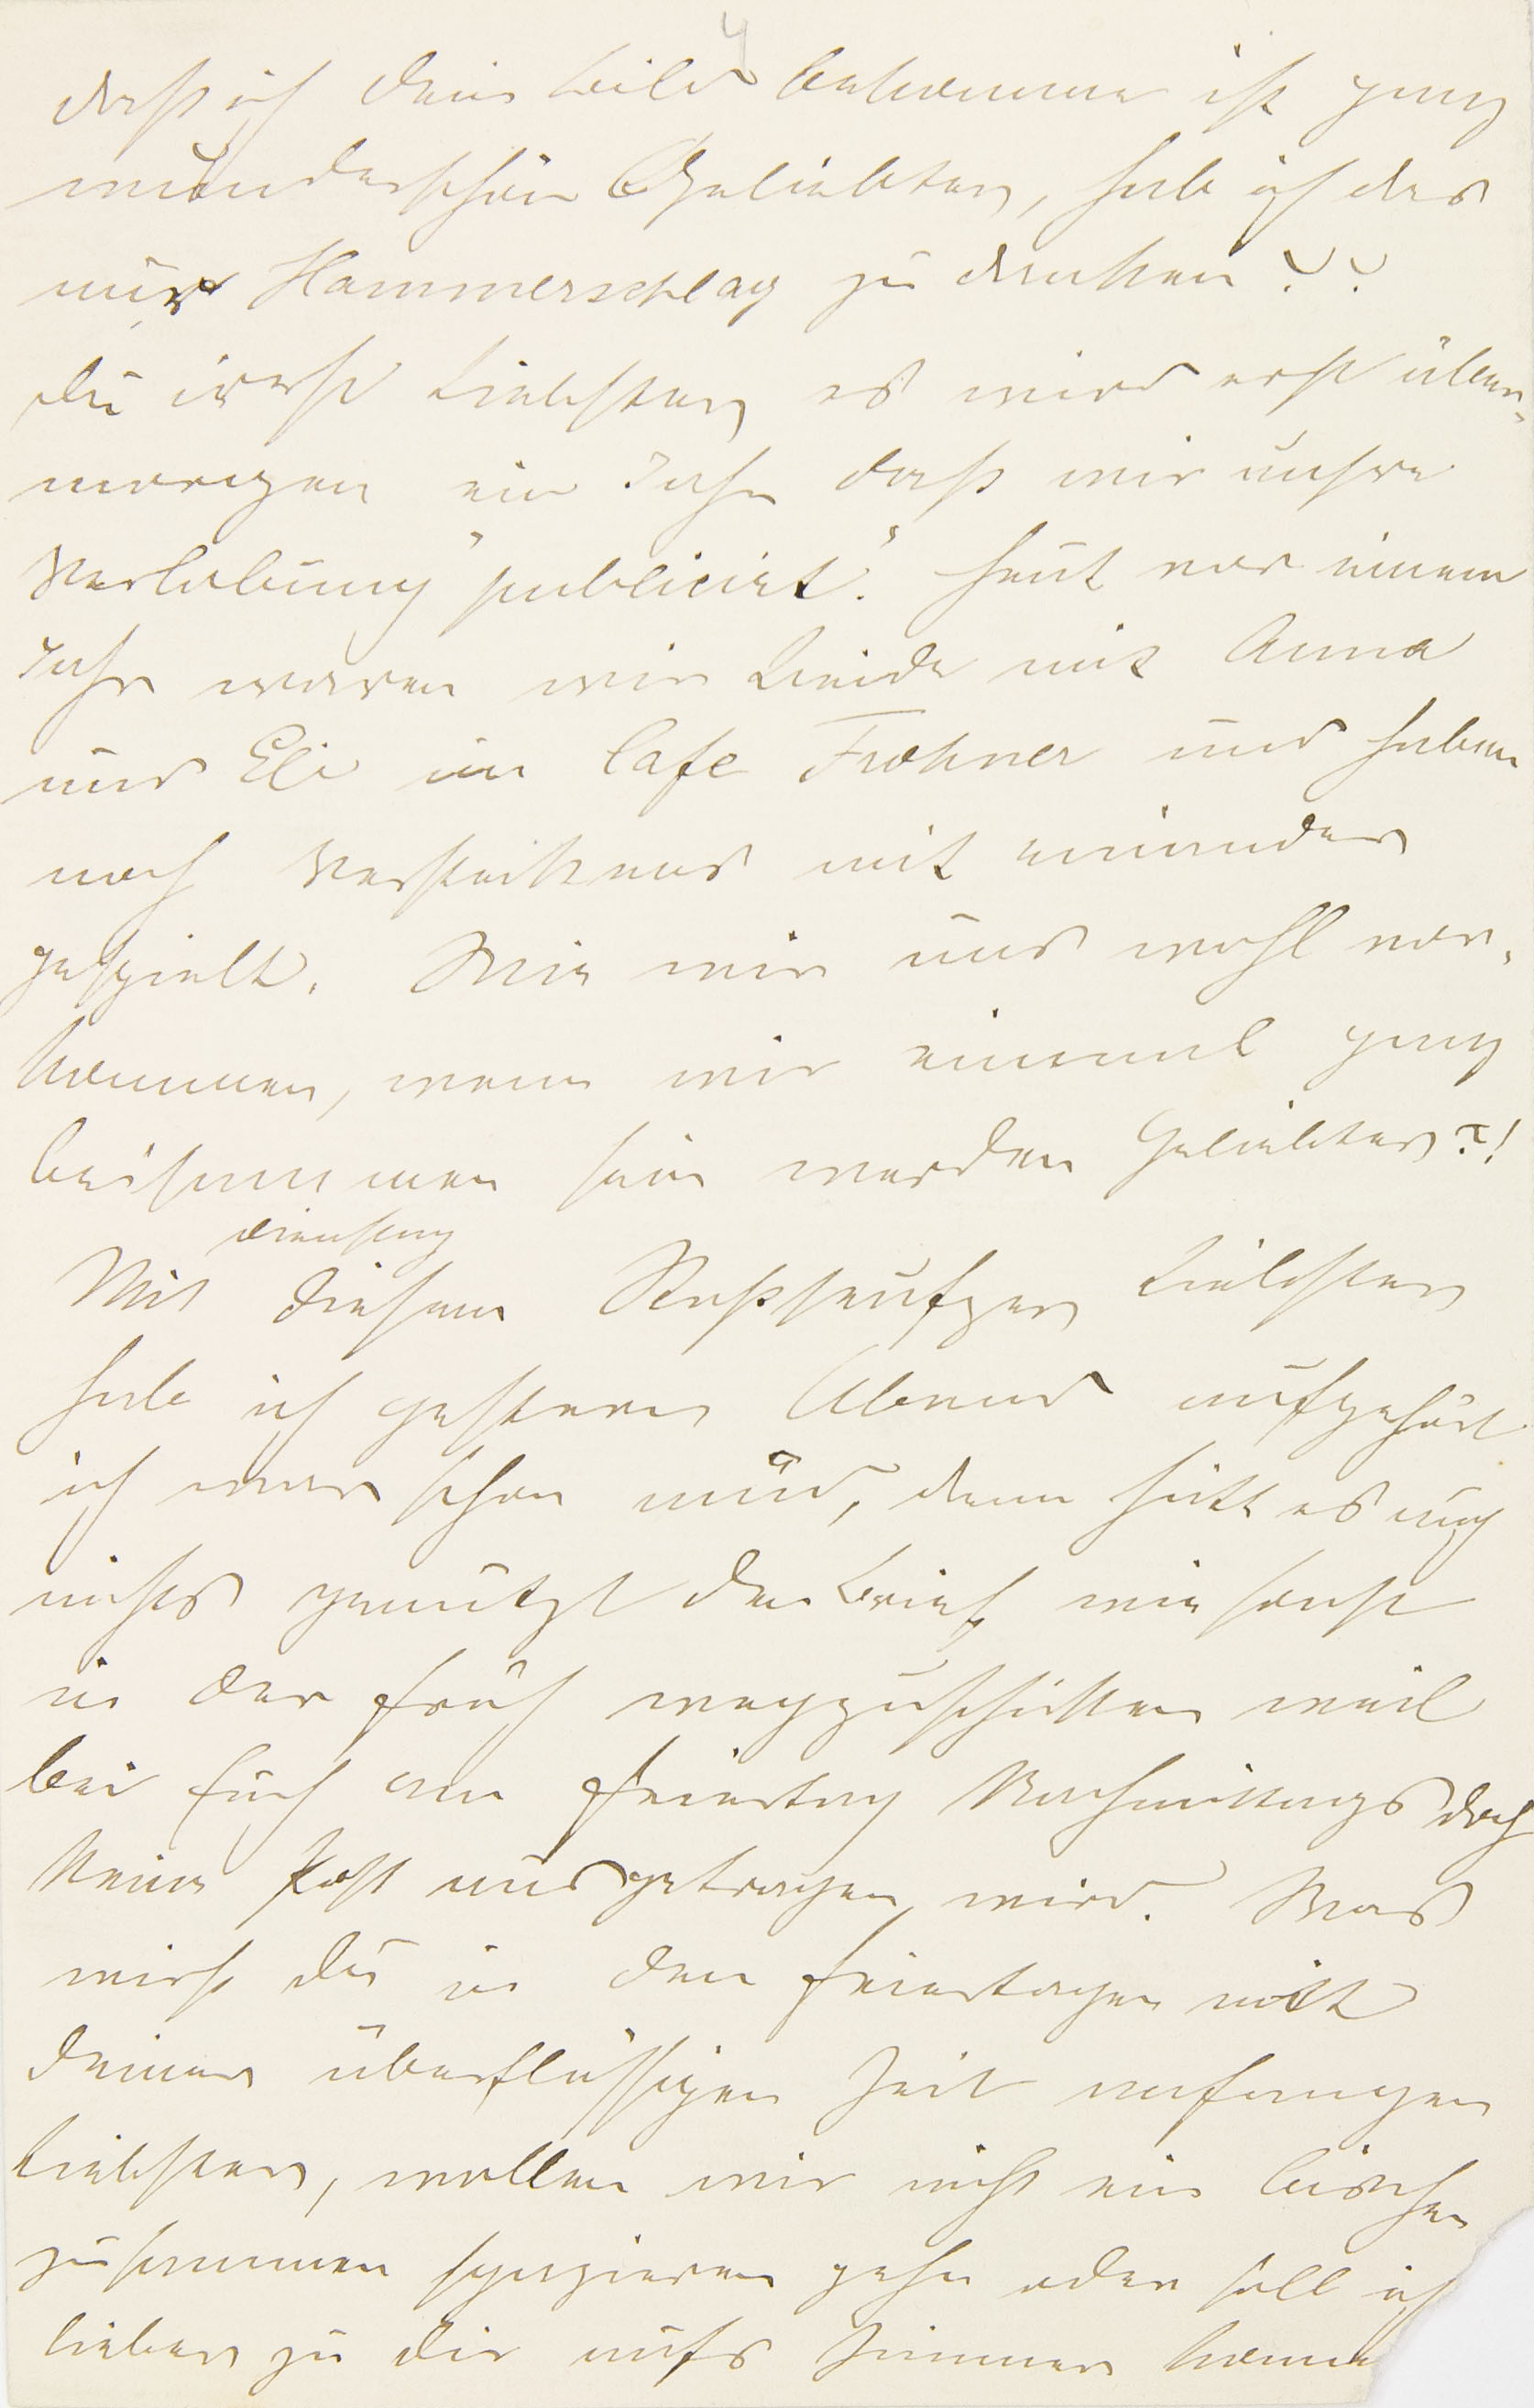 4
daß ich dein Bild bekomme ist ganz
wunderschön Geliebter, hab ich das
nur Hammerschlag zu danken??
du irrst Liebster, es wird erst über-
morgen ein Jahr daß wir unsre
Verlobung "publicirt". Heut vor einem
Jahr waren wir Beide mit Anna
und Eli im Cafe Frohner und haben
noch Versteckens mit einander
gespielt. Wie wir uns wohl vor-
kommen, wenn wir einmal ganz
beisammen sein werden Geliebter?!
dienstag
Mit diesem Stoßseufzer Liebster
hab ich gestern Abend aufgehört
ich war schon müd, dann hätt es auch
nichts genützt den Brief wie sonst
in der Früh wegzuschicken weil
bei Euch am Feiertag Nachmittags doch
keine Post ausgetragen wird. Was
wirst du in den Feiertagen mit
deiner überflüssigen Zeit anfangen
Liebster, wollen wir nicht ein bischen
zusammen spazieren gehn oder soll ich
lieber zu dir aufs Zimmer